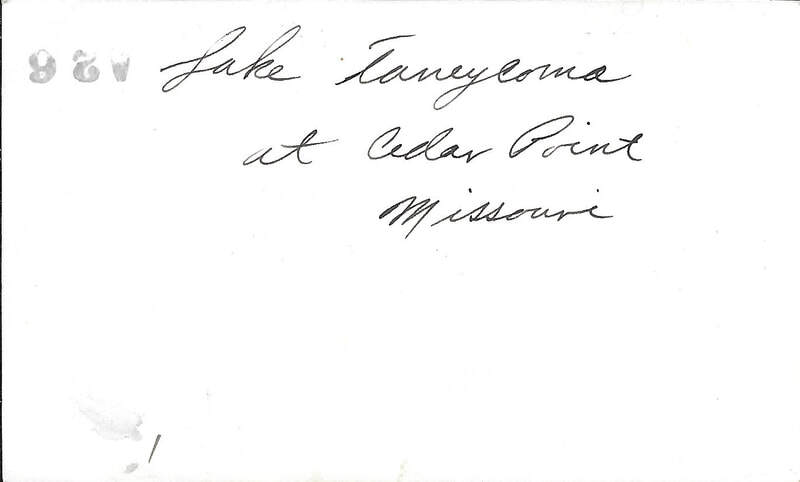 Lake Taneycomo
at Cedar Point
Missouri